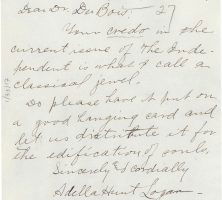 Dear Dr. Du Bois - 27
Your credo in the
current issue of the Inde-
pendent is what I call a
classical jewel.
Do please have it put on
a good hanging card and
let us distribute it for
the edification of souls.
Sincerely & cordially
Adella Hunt Logan